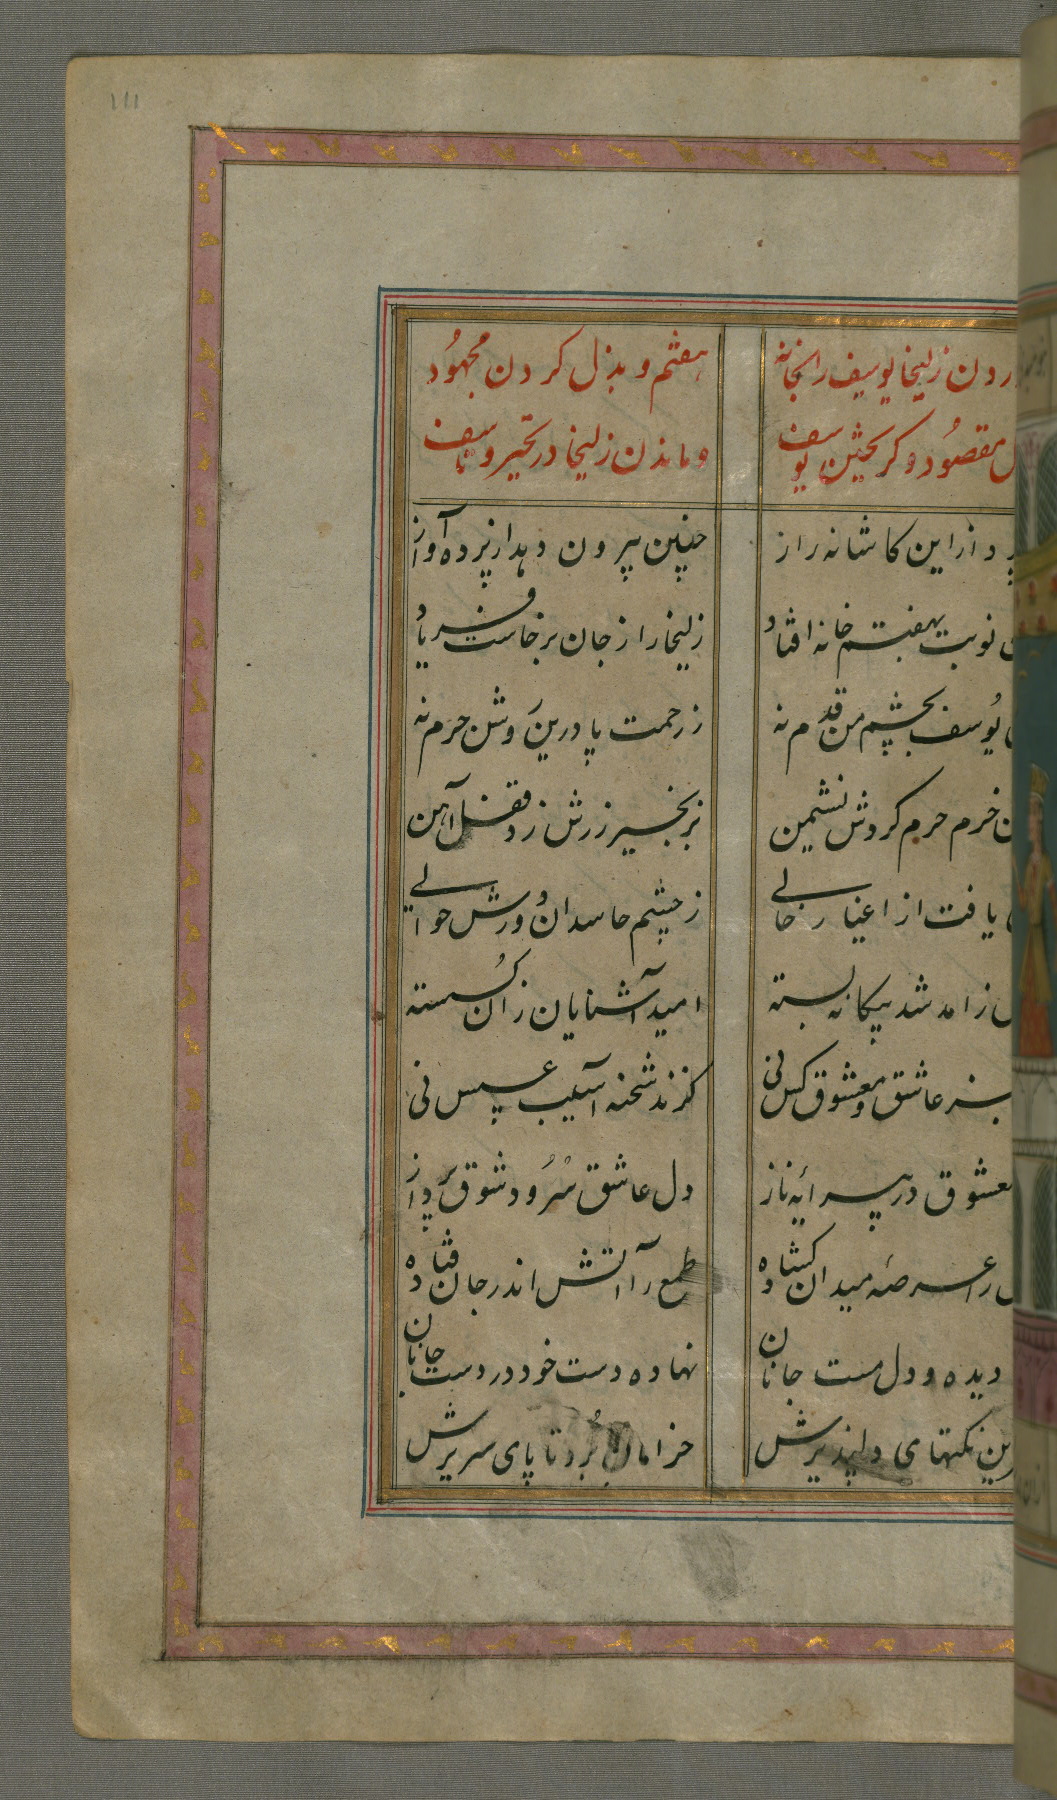 ردن زلیخا یوسف را بخانه هفتم و بذل کردن مجهود
مقصود و گریختن یوسف و ماندن زلیخا در تحیر و تاسف
پرداز این کاشانه راز چنین بیرون دهد از پرده آواز
نوبت بهفتم خانه افتاد زلیخا را ز جان برخاست فریاد
یوسف بچشم من قدم نه ز رحمت پا درین روشن حرم نه
خرم حرم کردش نشیمن بزنجیر زرش زد قفل آهن
یافت از اغیار خالی ز چشم حاسدان دورش حوالی
ز آمد شد بیگانه بسته امید آشنایان زان گسسته
عاشق و معشوق کس نی گزند شحنه آسیب عسس نی
معشوق در پیرایه ناز دل عاشق سرود شوق پرداز
را عرصه میدان گشاده طمع را آتش اندر جان فتاده
دیده و دل مست جانان نهاده دست خود در دست جانان
نکتهای دلپذیرش خرامان برد تا پای سریرش